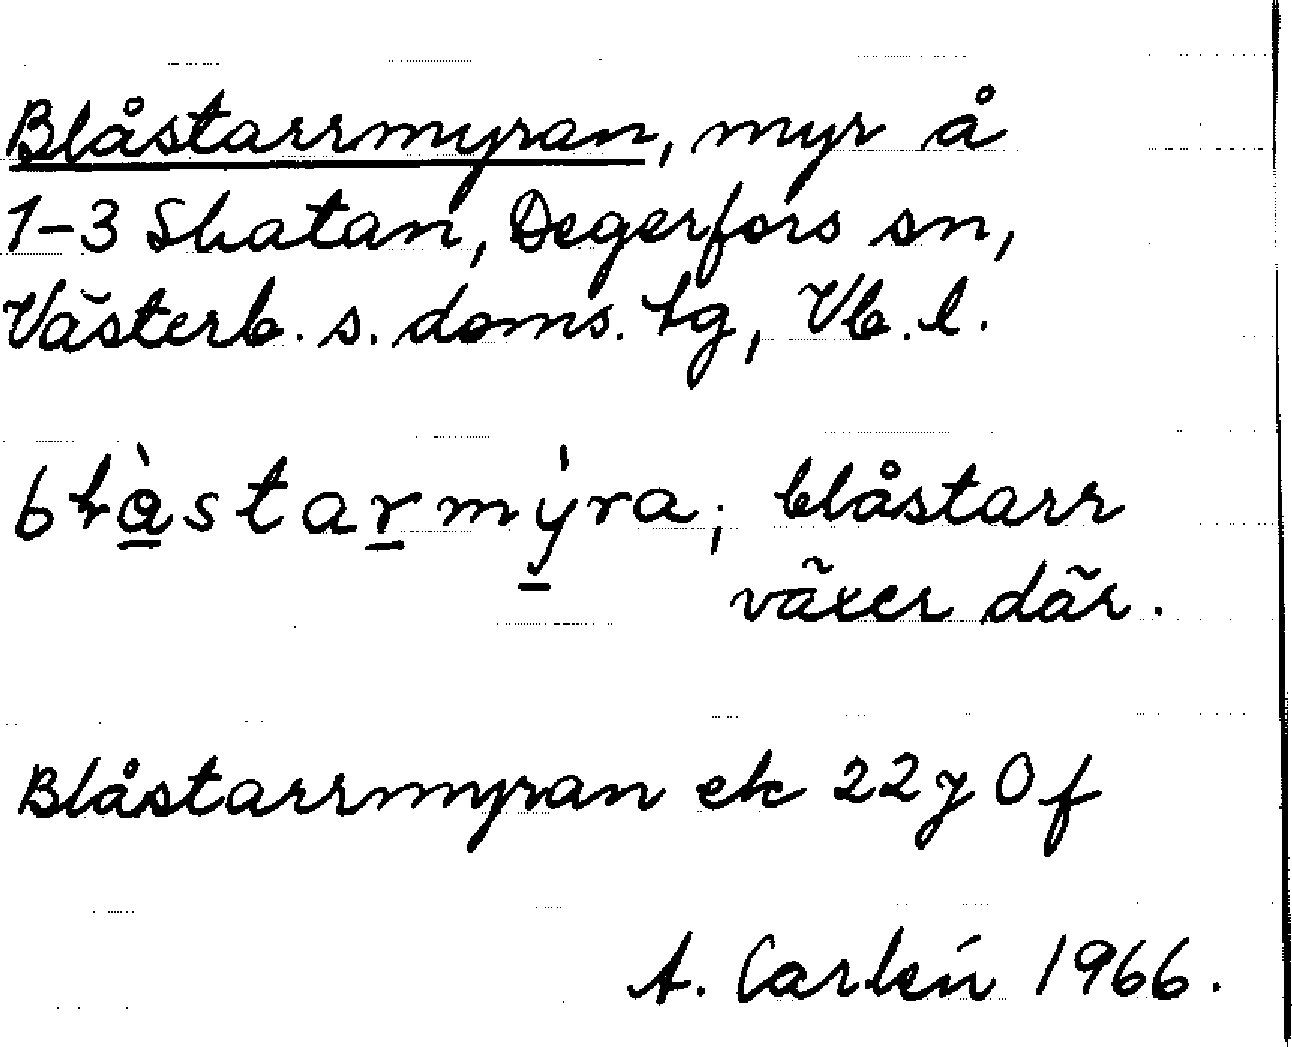 Blåstarrmyran, myr å
1-3 Skatan, Degerfors sn,
Västerb. s. doms. tg, Vb. l.
blàstarmýra; blåstarr
växer där.
Blåstarrmyran ek 22 y 0 f
A. Carlén 1966.